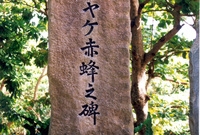 ヤケ赤蜂之碑